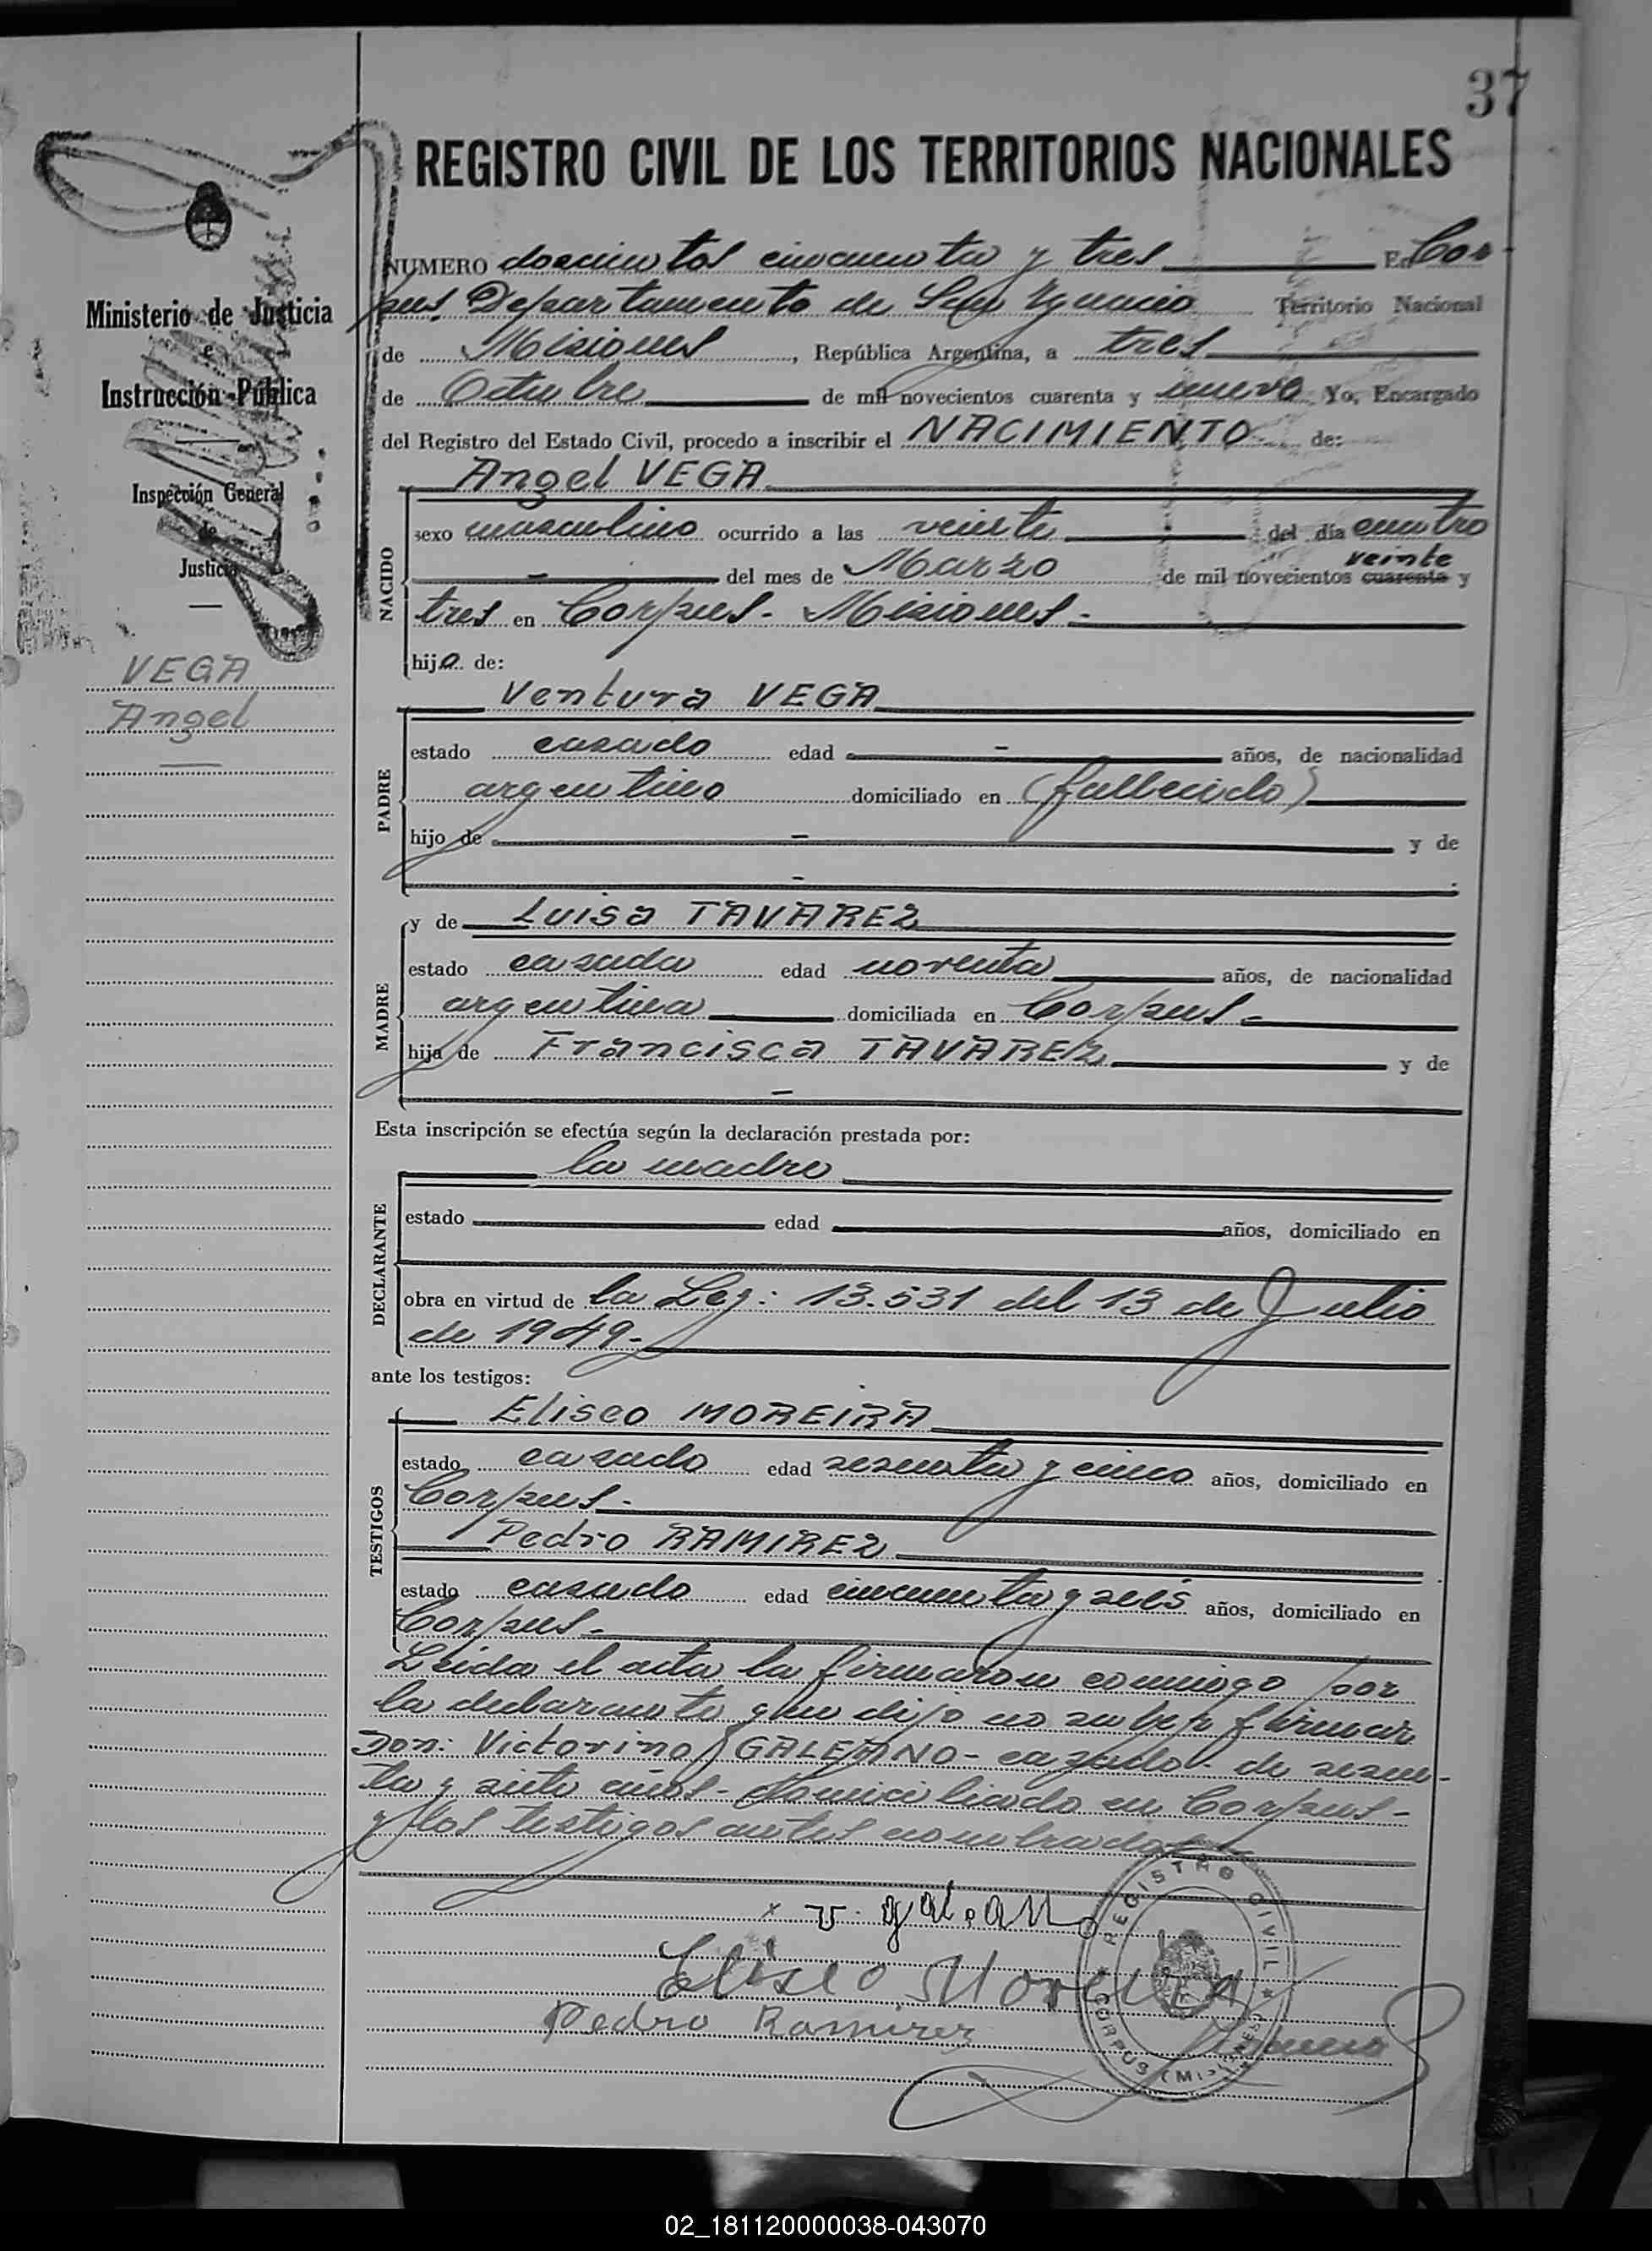 37
REGISTRO CIVIL DE LOS TERRITORIOS NACIONALES
NUMERO doscientos cincuenta y tres En Cor-
pus. Departamento de San Ygnacio Territorio Nacional
de Misiones, República Argentina, a tres
de Octubre de mil novecientos cuarenta y nueve Yo, Encargado
del Registro del Estado Civil, procedo a inscribir el NACIMIENTO de:
Angel VEGA
NACIDO
sexo masculino ocurrido a las veinte del día cuatro
veinte
- del mes de Marzo de mil novecientos cuarenta y
tres en Corpus - Misiones -
hijo de:
Ventura VEGA
PADRE
estado casado edad - años, de nacionalidad
argentino domiciliado en (fallecido)
hijo de - y de
-
y de Luisa TAVAREZ
MADRE
estado casada edad noventa años, de nacionalidad
argentina domiciliada en Corpus -
hija de Francisca TAVAREZ y de
-
Esta inscripción se efectúa según la declaración prestada por:
la madre
DECLARANTE
estado edad años, domiciliado en
obra en virtud de la Ley: 13.531 del 13 de Julio
de 1949 -
ante los testigos:
Eliseo MOREIRA
TESTIGOS
estado casado edad sesenta y cinco años, domiciliado en
Corpus -
Pedro RAMIREZ
estado casado edad cincuenta y seis años, domiciliado en
Corpus -
Leida el acta la firmaron conmigo por
la declarante que dijo no saber firmar
Don: Victorino GALEANO - casado - de sesen-
ta y siete años - domiciliado en Corpus -
y los testigos antes nombrados
x v. galeano
Eliseo Moreira
Pedro Ramirez
REGISTRO CIVIL
CORPUS (MISIONES)
Ministerio de Justicia
e
Instrucción Pública
Inspección General
de
Justicia
VEGA
Angel
02_181120000038-043070